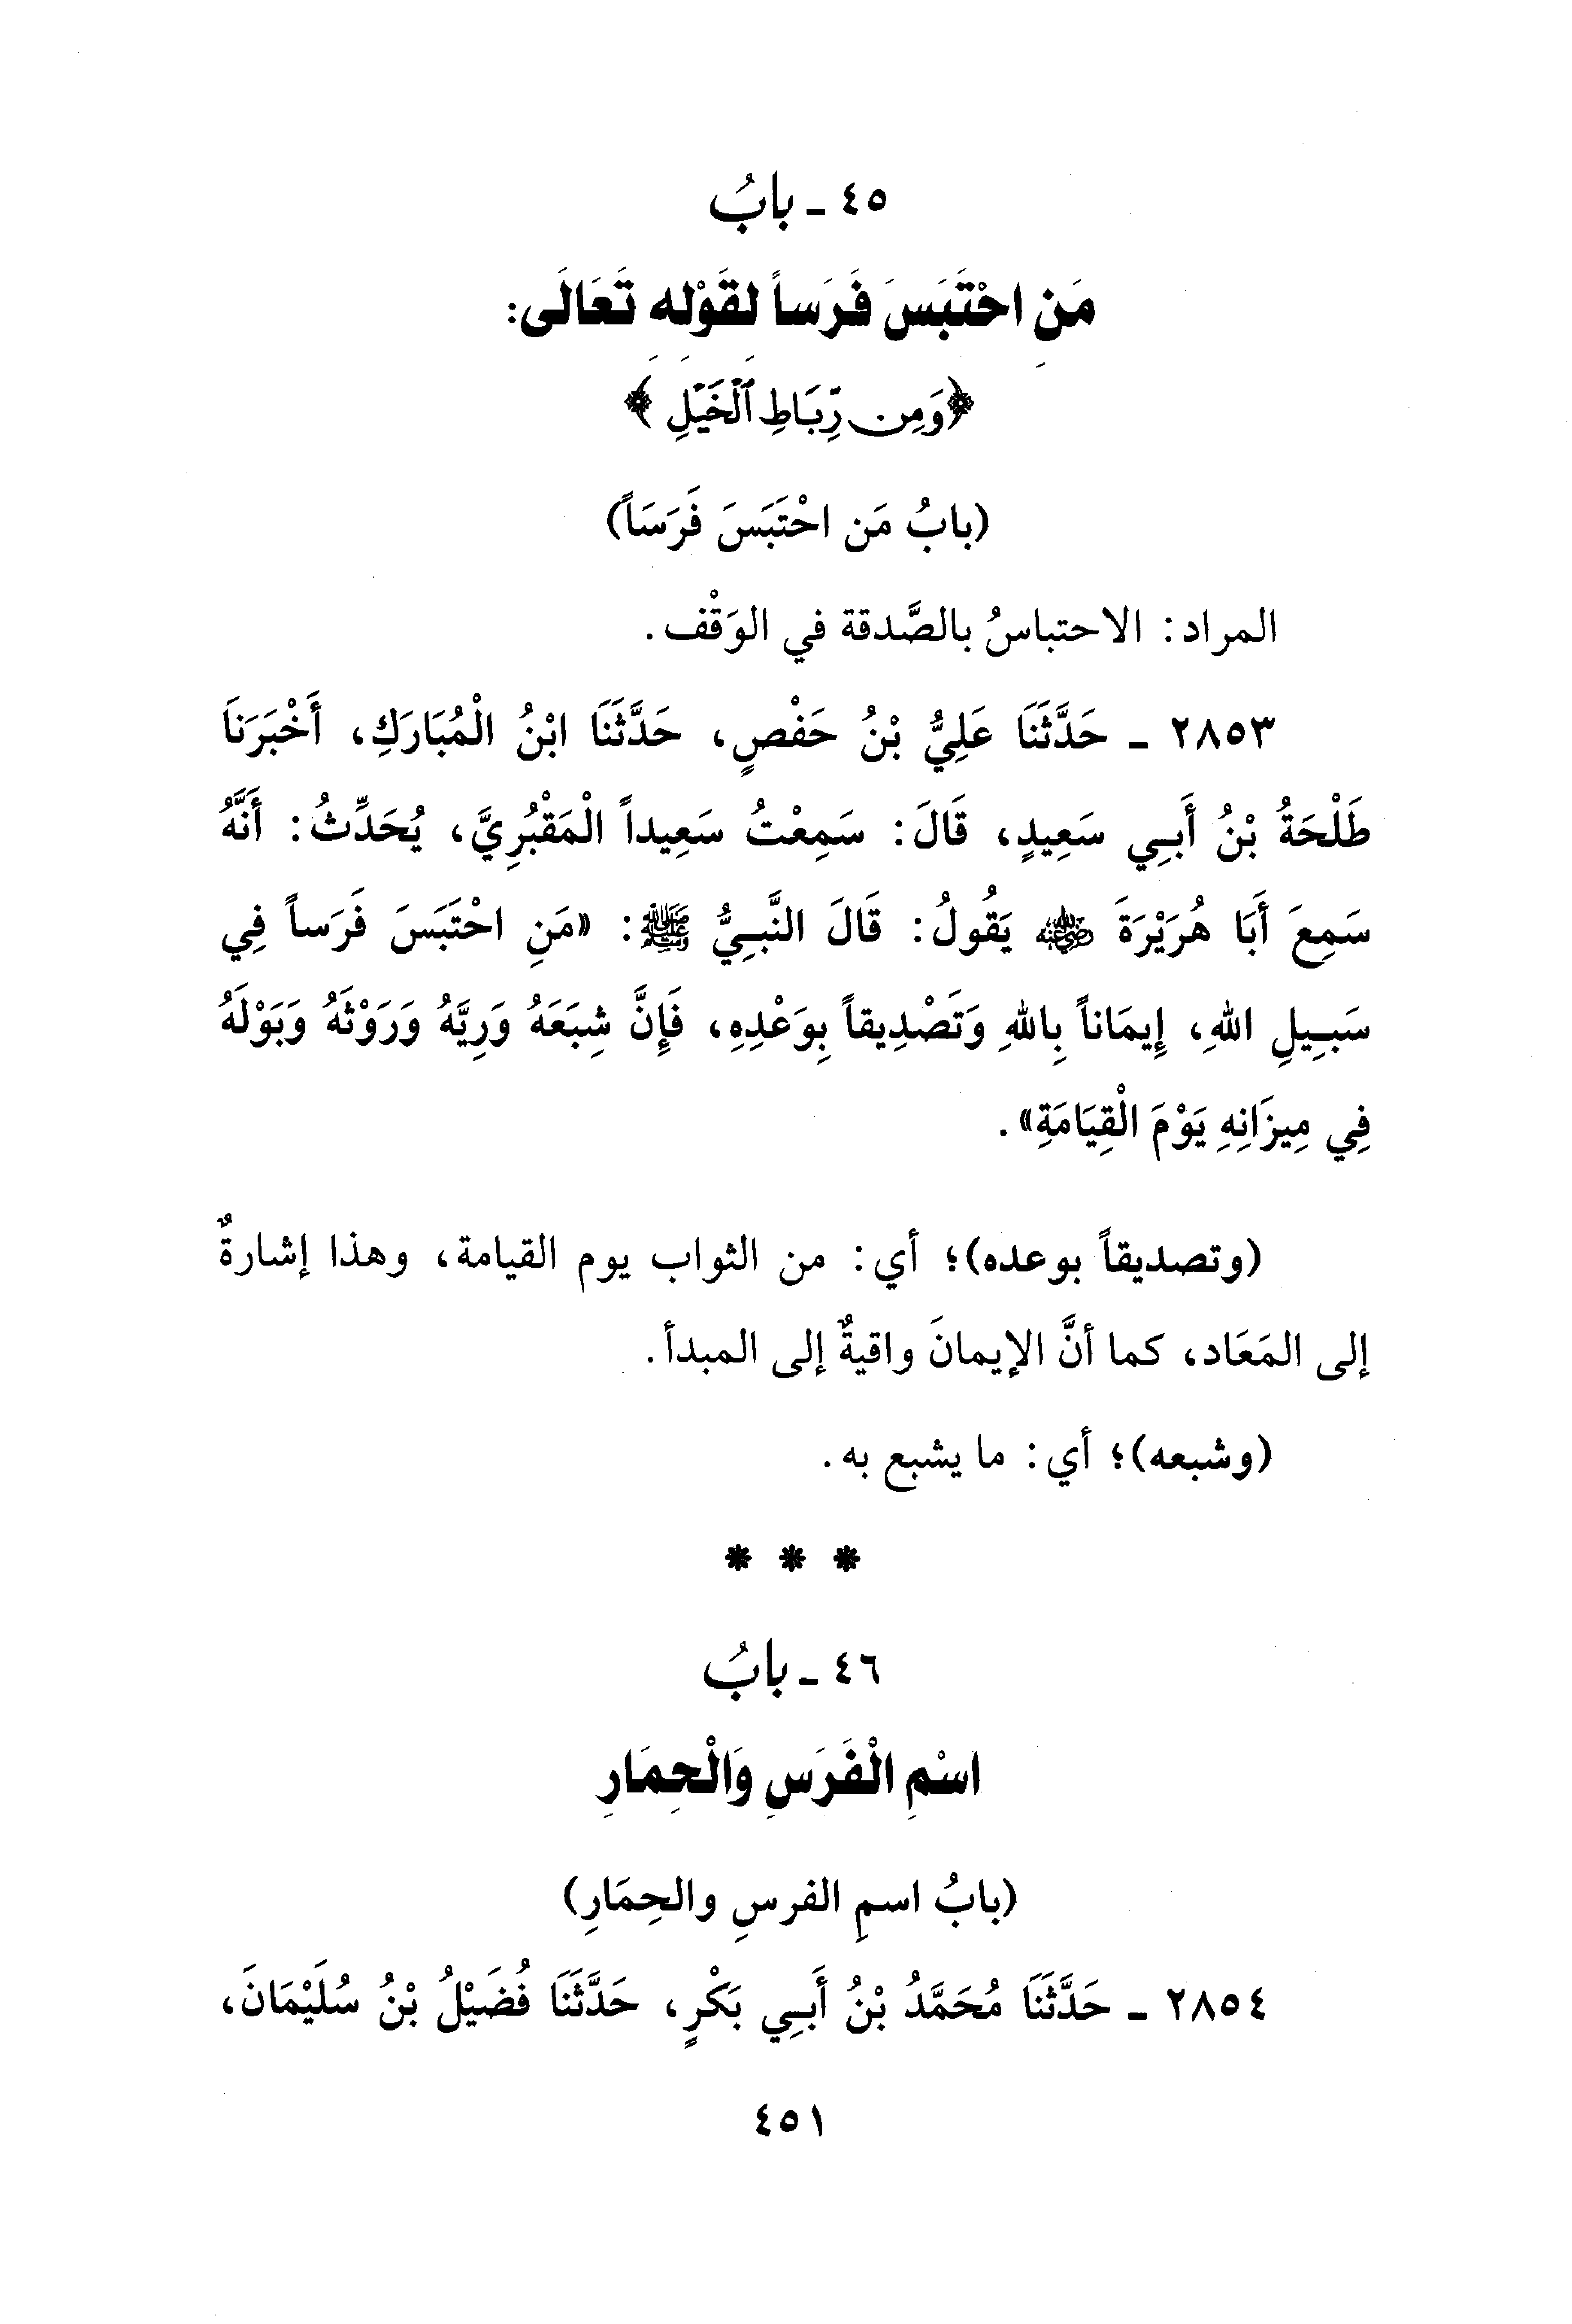 ٤٥ - بابُ
مَنِ احْتَبَسَ فَرَساً لقَوْله تَعَالَى:
﴿وَمِن رِّبَاطِ ٱلْخَيْلِ﴾
(بابُ مَن احْتَبَسَ فَرَسَاً)
المراد: الاحتباسُ بالصَّدقة في الوَقْف.
٢٨٥٣ - حَدَّثَنَا عَلِيُّ بْنُ حَفْصٍ، حَدَّثَنَا ابْنُ الْمُبَارَكِ، أَخْبَرَنَا
طَلْحَةُ بْنُ أَبِي سَعِيدٍ، قَالَ: سَمِعْتُ سَعِيداً الْمَقْبُرِيَّ، يُحَدِّثُ: أَنَّهُ
سَمِعَ أَبَا هُرَيْرَةَ رضي الله عنه يَقُولُ: قَالَ النَّبِيُّ ﷺ: «مَنِ احْتَبَسَ فَرَساً فِي
سَبِيلِ اللهِ، إِيمَاناً بِاللهِ وَتَصْدِيقاً بِوَعْدِهِ، فَإِنَّ شِبَعَهُ وَرِيَّهُ وَرَوْثَهُ وَبَوْلَهُ
فِي مِيزَانِهِ يَوْمَ الْقِيَامَةِ».
(وتصديقاً بوعده)؛ أي: من الثواب يوم القيامة، وهذا إشارةٌ
إلى المَعَاد، كما أنَّ الإيمانَ واقيةٌ إلى المبدأ.
(وشبعه)؛ أي: ما يشبع به.
* * *
٤٦ - بابُ
اسْمِ الْفَرَسِ وَالْحِمَارِ
(بابُ اسمِ الفرسِ والحِمَارِ)
٢٨٥٤ - حَدَّثَنَا مُحَمَّدُ بْنُ أَبِي بَكْرٍ، حَدَّثَنَا فُضَيْلُ بْنُ سُلَيْمَانَ،
٤٥١